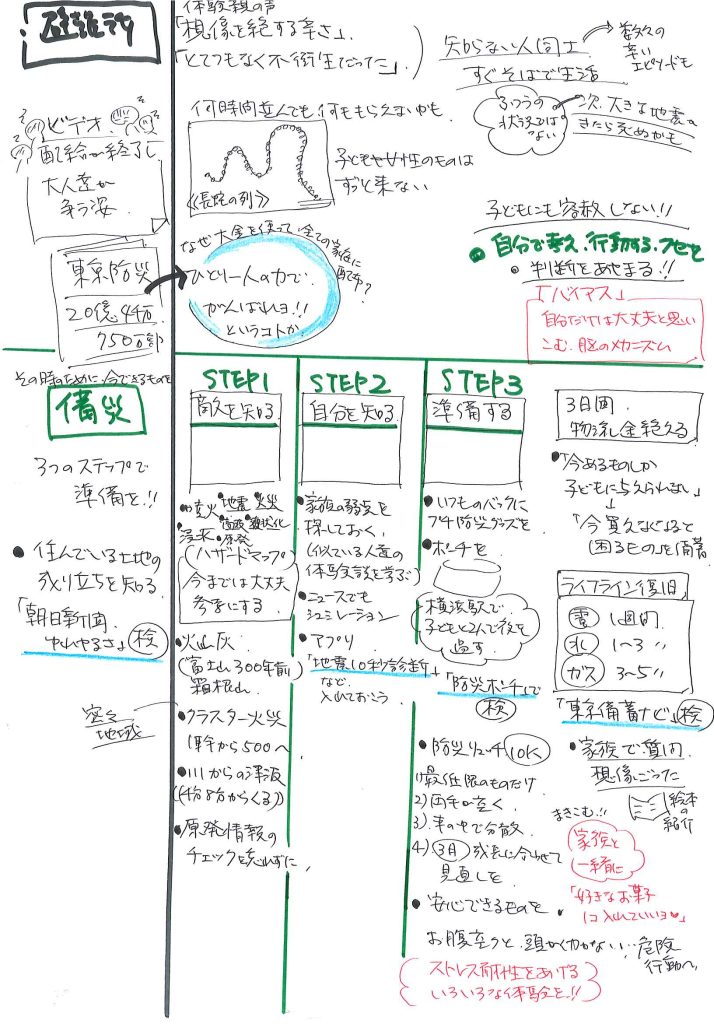 避難所
体験親の声
「想像を絶する辛さ」
「とてつもなく不衛生だった」
知らない人同士
すぐそばで生活
数々の
辛い
エピソードも
ふつうの
状況では
ない
次、大きな地震が
きたら死ぬかも
ビデオ
配給が終了し
大人達が
争う姿
何時間並んでも、何ももらえないかも
《長蛇の列》
子どもや女性のものは
ずっと来ない
子どもにも容赦しない!!
自分で考え、行動するクセを
判断をあやまる!!
「バイアス」
自分だけは大丈夫と思い
こむ、脳のメカニズム
東京防災
20億4千万
750万部
なぜ大金を使って全ての家庭に
配布?
ひとり一人の力で
がんばれヨ!!
というコトか
その時のために、今できるものを
備災
3つのステップで
準備を!!
住んでいる土地の
成り立ちを知る
「朝日新聞
ゆれやすさ」検
STEP1
敵を知る
噴火 地震 火災
浸水 津波 液状化
原発
(ハザードマップ)
今までは大丈夫
参考にする
火山灰
(富士山300年前)
箱根山
密々
地域
クラスター火災
1軒から500へ
川からの津波
原発情報の
チェックを忘れずに
STEP2
自分を知る
家族の弱点を
探しておく
(似ている人達の
体験談を学ぶ)
ニュースでも
シュミレーション
アプリ
「地震10秒診断」
など
入れておこう
STEP3
準備する
いつものバックに
プチ防災グッズを
ポーチを
横浜駅で
子どもと2人で夜を
過す
「防災ポーチ」で
検
防災リュック10K
1)最低限のものだけ
2)両手が空く
3)車の中で分散
4)3月 成長に合わせて
見直しを
安心できるものを
お腹空くと、頭が働かない…危険
行動へ
ストレス耐性をあげる
いろいろな体験を!!
3日間
物流途絶える
「今あるものしか
子どもに与えられない」
↓
「今買えなくなると
困るもの」を備蓄
ライフライン復旧
電 1週間
水 1〜3 〃
ガス 3〜5 〃
「東京備蓄ナビ」検
家族で質問
想像ごっこ
絵本の
紹介
まきこむ!!
家族と
一緒に
「好きなお菓子
1コ入れていいヨ♥」